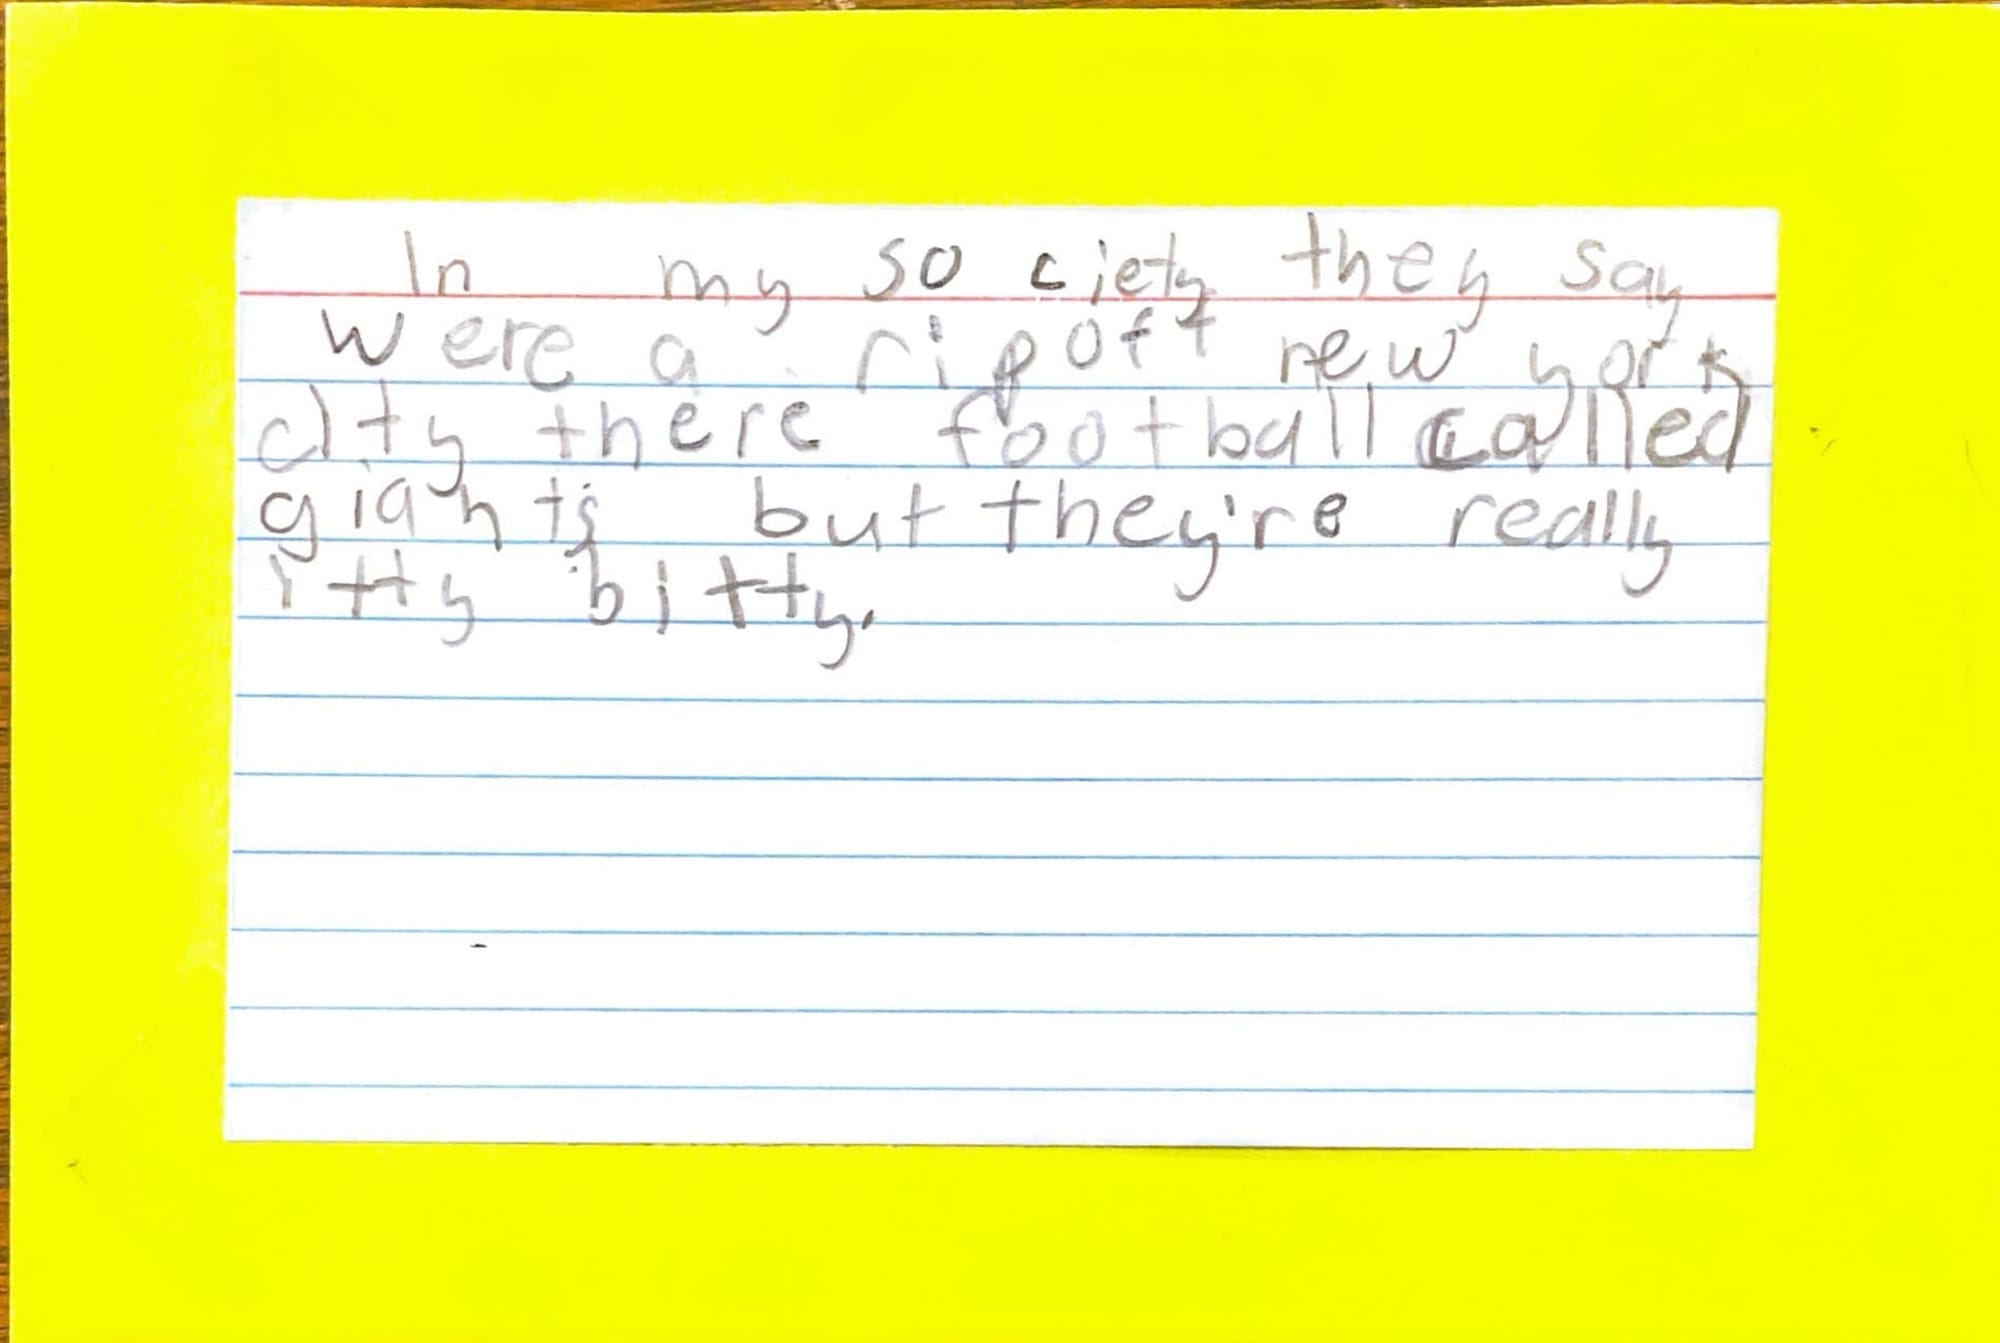 In my society they say
were a ripoff new york
city there football called
giants but they're really
itty bitty.